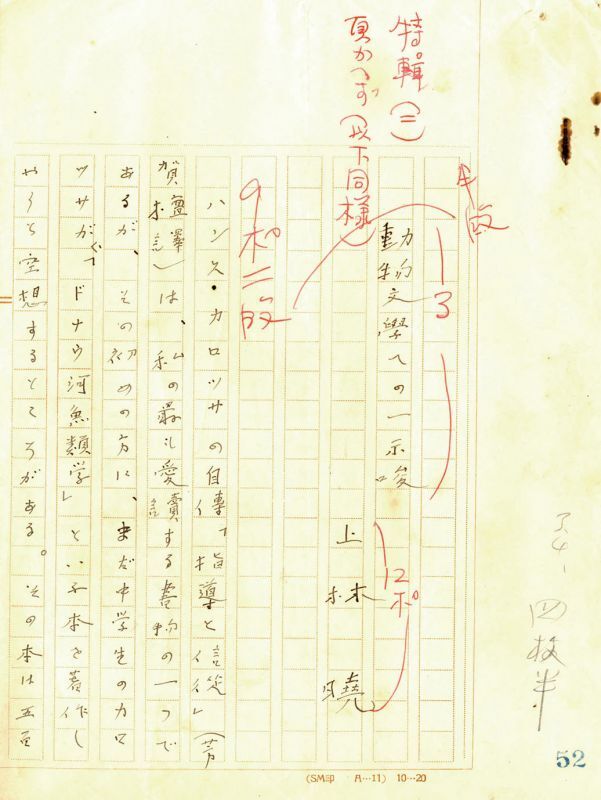 特輯(二)
頁かへず(以下同様)
13
動物文學への一示唆
12ポ
上林暁
9ポ二段
ハンス・カロッサの自傳「指導と信從」(芳
賀檀譯)は、私の最も愛讀する書物の一つで
あるが、その初めの方に、まだ中学生のカロ
ッサが、「ドナウ河魚類学」といふ本を著作し
やうと空想するところがある。その本は五百
四枚半
52
(SM印 A…11) 10…20